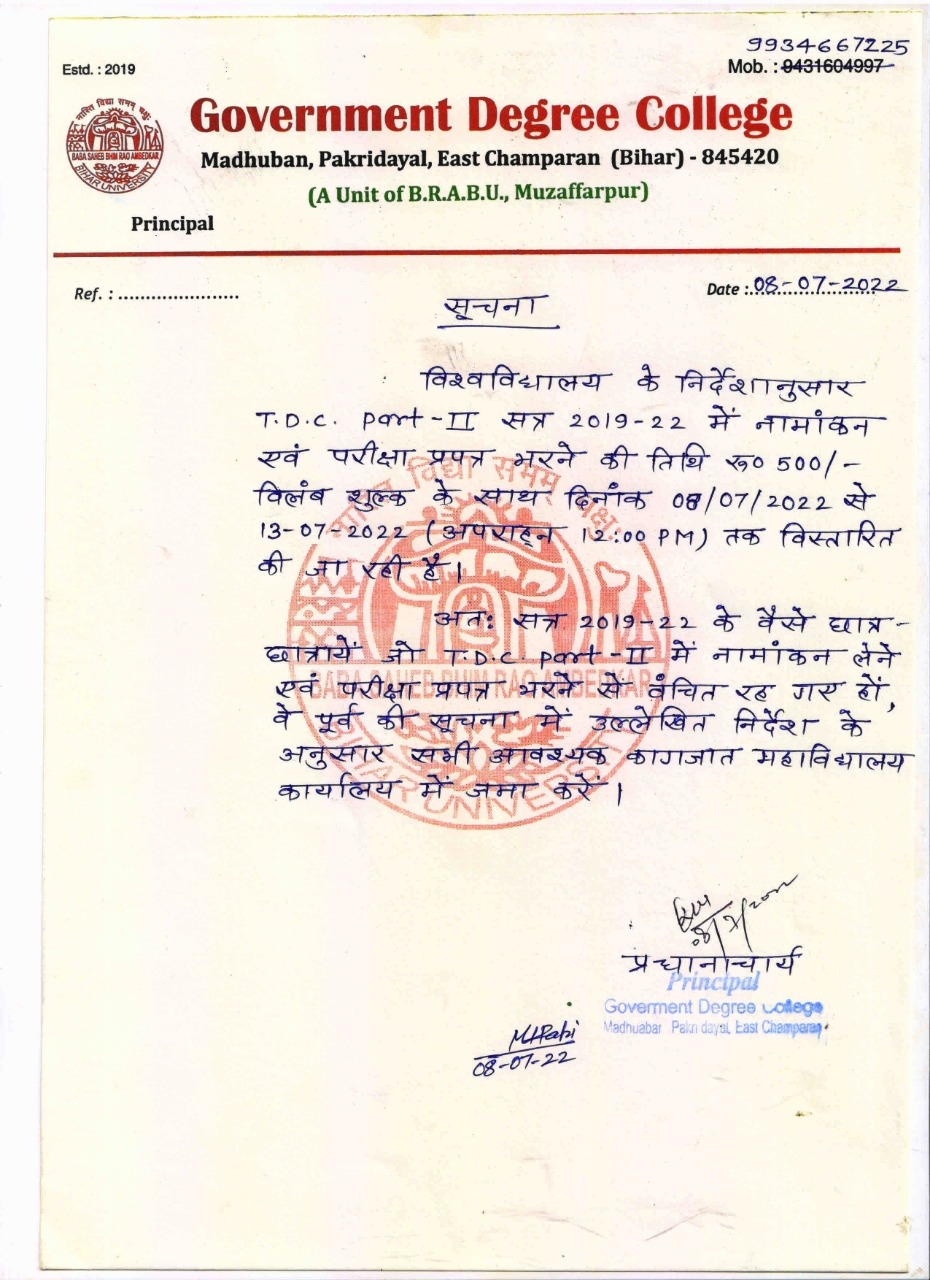 9934667225
Estd. : 2019
Mob. : 9431604997
नास्ति विद्या समम् चक्षुः
BABA SAHEB BHIM RAO AMBEDKAR
BIHAR UNIVERSITY
Government Degree College
Madhuban, Pakridayal, East Champaran (Bihar) - 845420
(A Unit of B.R.A.B.U., Muzaffarpur)
Principal
Ref. : ......................
Date : 08-07-2022
सूचना
विश्वविद्यालय के निर्देशानुसार
T.D.C. Part-II सत्र 2019-22 में नामांकन
एवं परीक्षा प्रपत्र भरने की तिथि रू0 500/-
विलंब शुल्क के साथ दिनांक 08/07/2022 से
13-07-2022 (अपराह्न 12:00 PM) तक विस्तारित
की जा रही है।
अतः सत्र 2019-22 के वैसे छात्र-
छात्रायें जो T.D.C. Part-II में नामांकन लेने
एवं परीक्षा प्रपत्र भरने से वंचित रह गए हों,
वे पूर्व की सूचना में उल्लेखित निर्देश के
अनुसार सभी आवश्यक कागजात महाविद्यालय
कार्यालय में जमा करें।
BABA SAHEB BHIM RAO AMBEDKAR
BIHAR UNIVERSITY
प्रधानाचार्य
Principal
Goverment Degree College
Madhuabar Pakri dayal, East Champaran
08-07-22